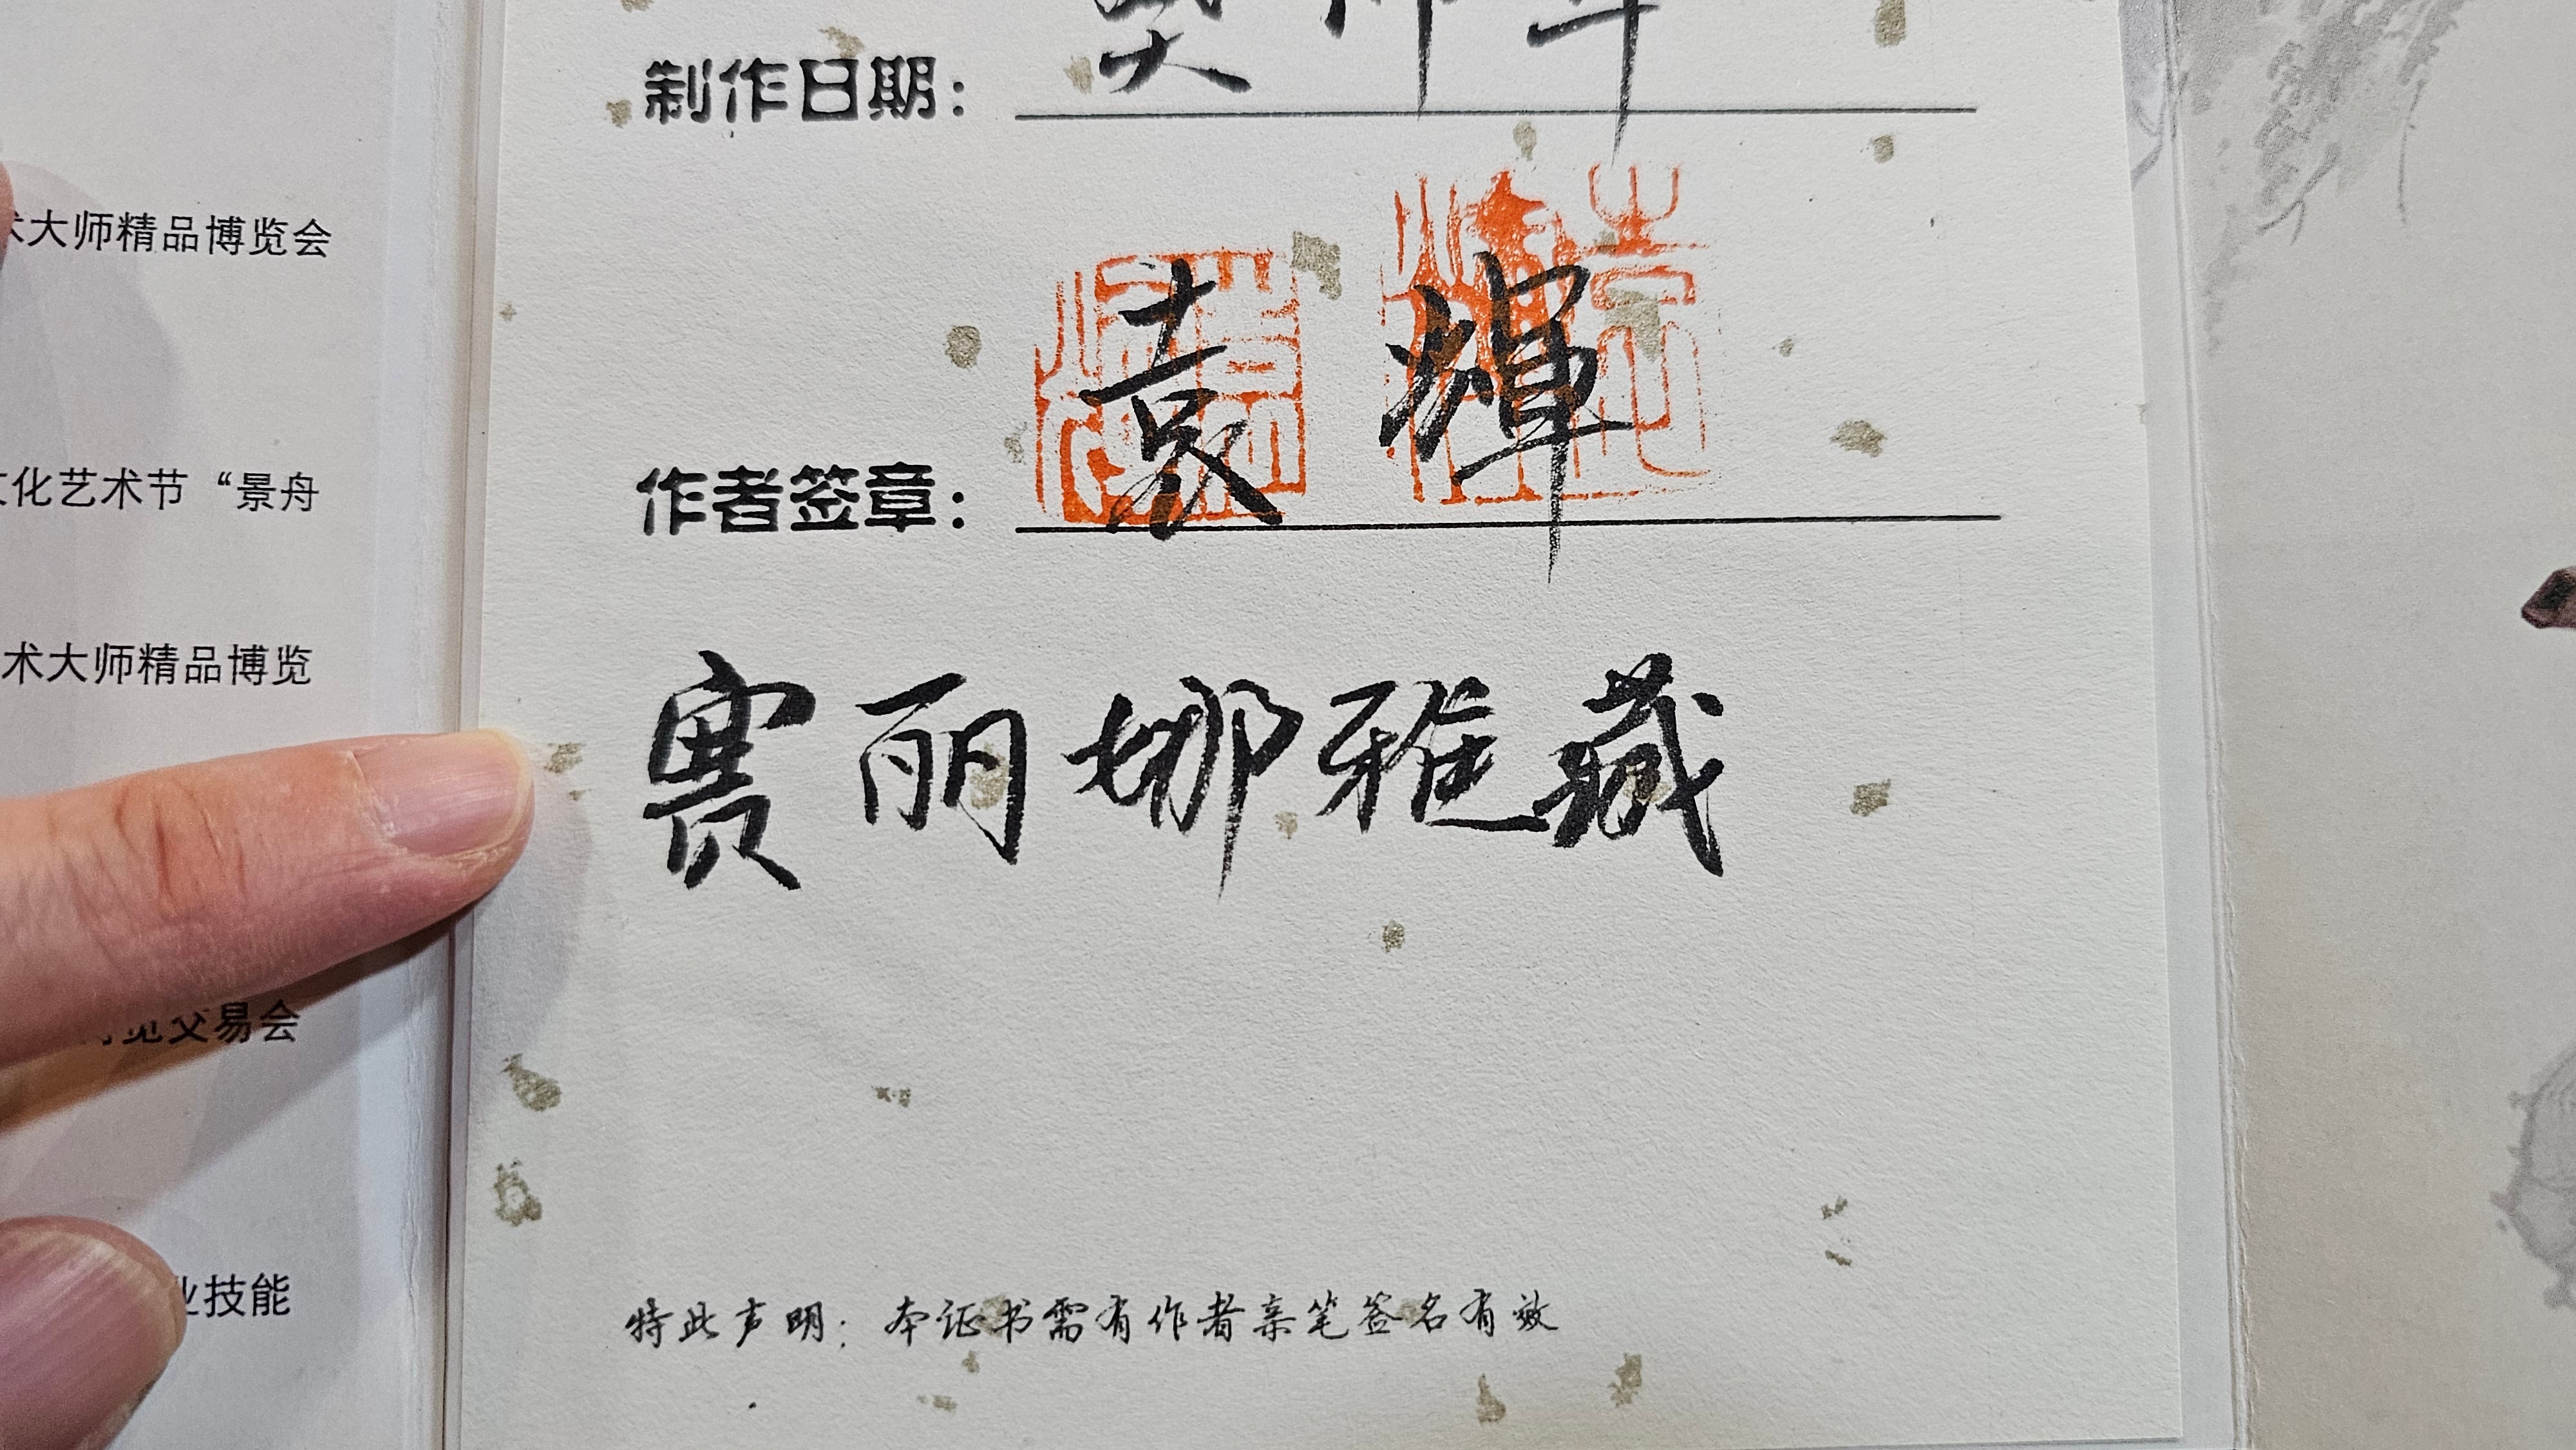 制作日期：
作者签章：袁輝
赛丽娜雅藏
特此声明：本证书需有作者亲笔签名有效
术大师精品博览会
文化艺术节“景舟
术大师精品博览
览交易会
业技能